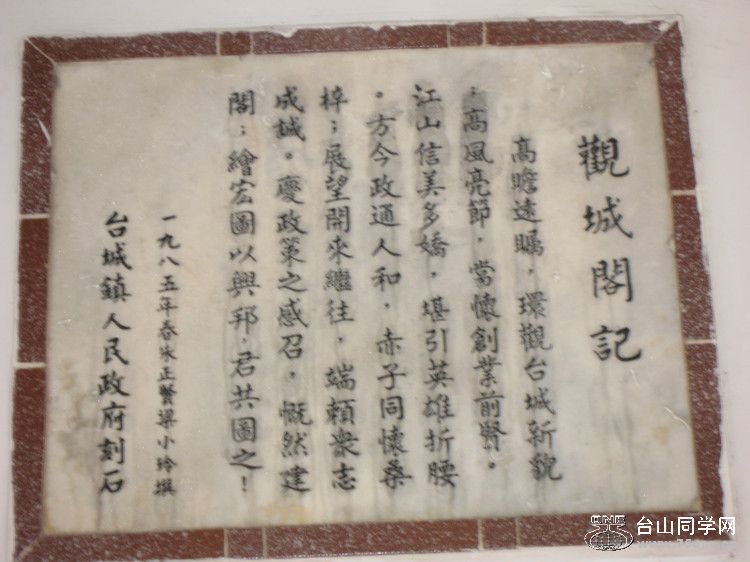 觀城閣記
高瞻遠矚，環觀台城新貌
；高風亮節，當懷創業前賢。
江山信美多嬌，堪引英雄折腰
。方今政通人和，赤子同懷桑
梓；展望開來繼往，端賴衆志
成誠。慶政策之感召，慨然建
閣；繪宏圖以興邦，君共圖之！
一九八五年春朱正賢梁小玲撰
台城鎮人民政府刻石
台山同学网